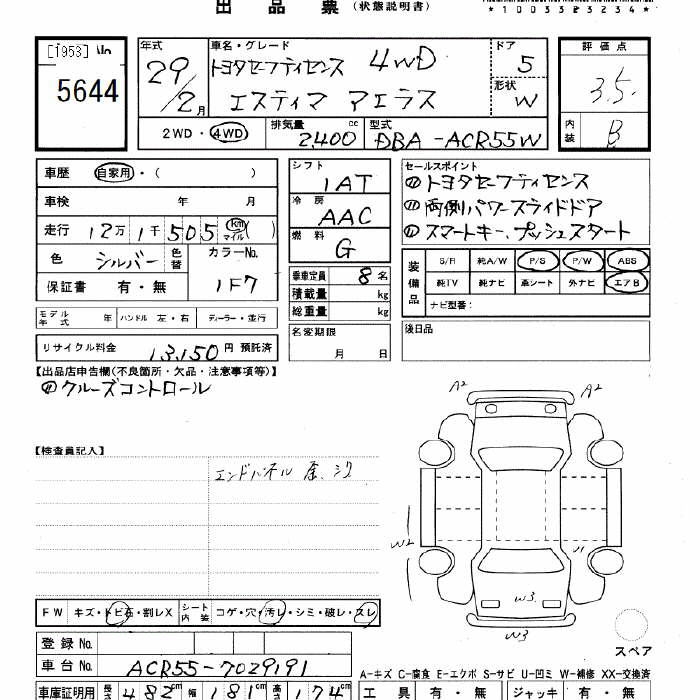 出品票(状態説明書)
*1003323234*
[1953]
5644
年式
29/2月
車名・グレード
トヨタセーフティセンス 4WD
エスティマ アエラス
ドア
5
形状
W
2WD・4WD
排気量
2400cc
型式
DBA-ACR55W
評価点
3.5
内装
B
車歴 自家用・( )
車検 年 月
走行 12万1千505 km マイル( )
色 シルバー 色替 カラーNo. 1F7
保証書 有・無
モデル年式 年 ハンドル 左・右 ディーラー・並行
リサイクル料金 13,150円預託済
シフト
IAT
冷房
AAC
燃料
G
乗車定員 8名
積載量 kg
総重量 kg
名変期限
月 日
セールスポイント
トヨタセーフティセンス
両側パワースライドドア
スマートキー、プッシュスタート
装備品 S/R 純A/W P/S P/W ABS
純TV 純ナビ 革シート 外ナビ エアB
ナビ型番:
後日品
【出品店申告欄(不良箇所・欠品・注意事項等)】
クルーズコントロール
【検査員記入】
エンドパネル
A2 A2
W2
W3
W3
スペア
FW キズ・トビ石・割レX シート内装 コゲ・穴・汚レ・シミ・破レ・スレ
登録No.
車台No. ACR55-7029191
A-キズ C-腐食 E-エクボ S-サビ U-凹ミ W-補修 XX-交換済
車庫証明用 長さ 482cm 幅 181cm 高さ 174cm
工具 有・無 ジャッキ 有・無